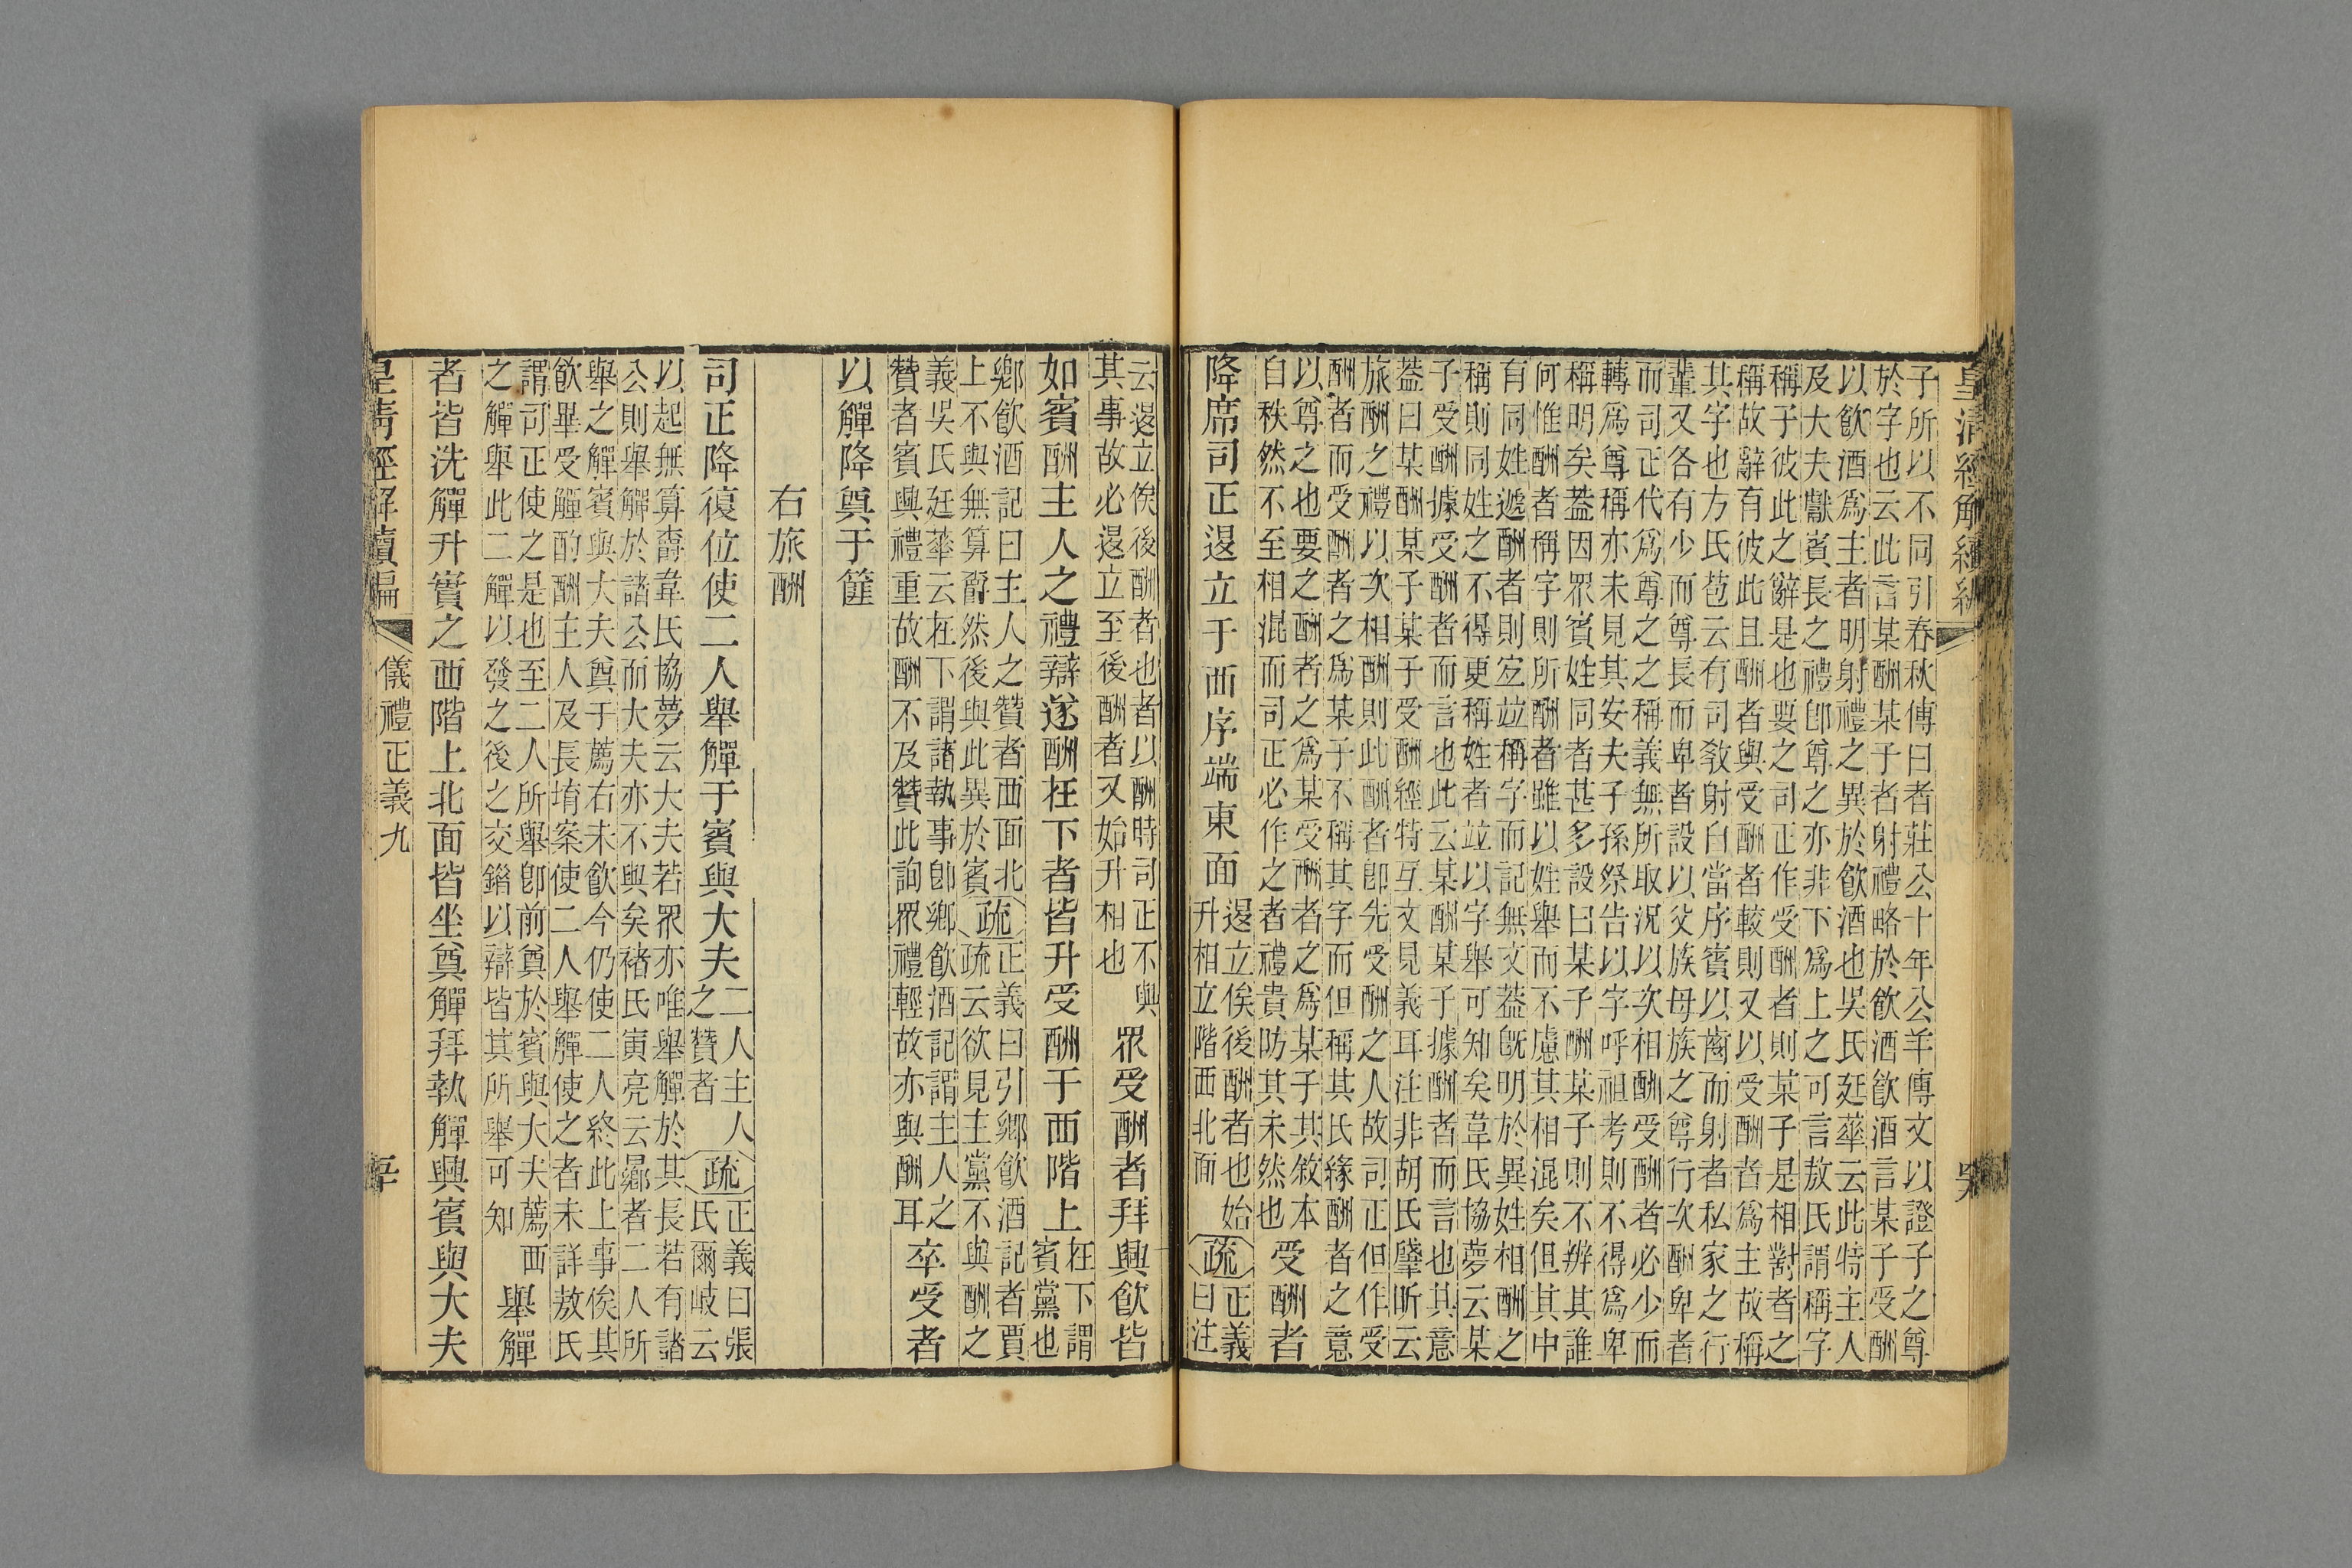 皇清經解續編
子所以不同引春秋傳曰者莊公十年公羊傳文以證子之尊
於字也云此言某酬某子者射禮略於飮酒飮酒言某子受酬
以飮酒爲主者明射禮之異於飮酒也吳氏廷華云此特主人
及大夫獻賓長之禮卽尊之亦非下爲上之可言敖氏謂稱字
稱子彼此之辭是也要之司正作受酬者則某子是相對者之
稱故辭有彼此且酬者與受酬者較則又以受酬者爲主故稱
其字也方氏苞云有司敎射自當序賓以齒而射者私家之行
輩又各有少而尊長而卑者設以父族母族之尊行次酬卑者
而司正代爲尊之之稱義無所取況以次相酬受酬者必少而
轉爲尊稱亦未見其安夫子孫祭告以字呼祖考則不得爲卑
稱明矣葢因眾賓姓同者甚多設曰某子酬某子則不辨其誰
何惟酬者稱字則所酬者雖以姓舉而不慮其相混矣但其中
有同姓遞酬者則宐竝稱字而記無文葢旣明於異姓相酬之
稱則同姓之不得更稱姓者竝以字舉可知矣韋氏協夢云某
子受酬據受酬者而言也此云某酬某子據酬者而言也其意
葢曰某酬某子某子受酬經特互文見義耳注非胡氏肇昕云
旅酬之禮以次相酬則此酬者卽先受酬之人故司正但作受
酬者而受酬者之爲某子不稱其字而但稱其氏緣酬者之意
以尊之也要之酬者之爲某受酬者之爲某子其敘本
自秩然不至相混而司正必作之者禮貴防其未然也
受酬者
降席司正退立于西序端東面
退立俟後酬者也始
升相立階西北面
疏
正義
曰注
云退立俟後酬者也者以酬時司正不與
其事故必退立至後酬者又始升相也
眾受酬者拜興飮皆
如賓酬主人之禮辯遂酬在下者皆升受酬于西階上
在下謂
賓黨也
鄉飮酒記曰主人之贊者西面北
上不與無算爵然後與此異於賓
疏
正義曰引鄉飮酒記者賈
疏云欲見主黨不與酬之
義吳氏廷華云在下謂諸執事卽鄉飮酒記謂主人之
贊者賓興禮重故酬不及贊此詢眾禮輕故亦與酬耳
卒受者
以觶降奠于篚
右旅酬
司正降復位使二人舉觶于賓與大夫
二人主人
之贊者
疏
正義曰張
氏爾岐云
以起無算爵韋氏協夢云大夫若眾亦唯舉觶於其長若有諸
公則舉觶於諸公而大夫亦不與矣褚氏寅亮云曏者二人所
舉之觶賓與大夫奠于薦右未飮今仍使二人終此上事俟其
飮畢受觶酌酬主人及長堉案使二人舉觶使之者未詳敖氏
謂司正使之是也至二人所舉卽前奠於賓與大夫薦西
之觶舉此二觶以發之後之交錯以辯皆其所舉可知
舉觶
者皆洗觶升實之西階上北面皆坐奠觶拜執觶興賓與大夫
皇淸經解續編
儀禮正義九